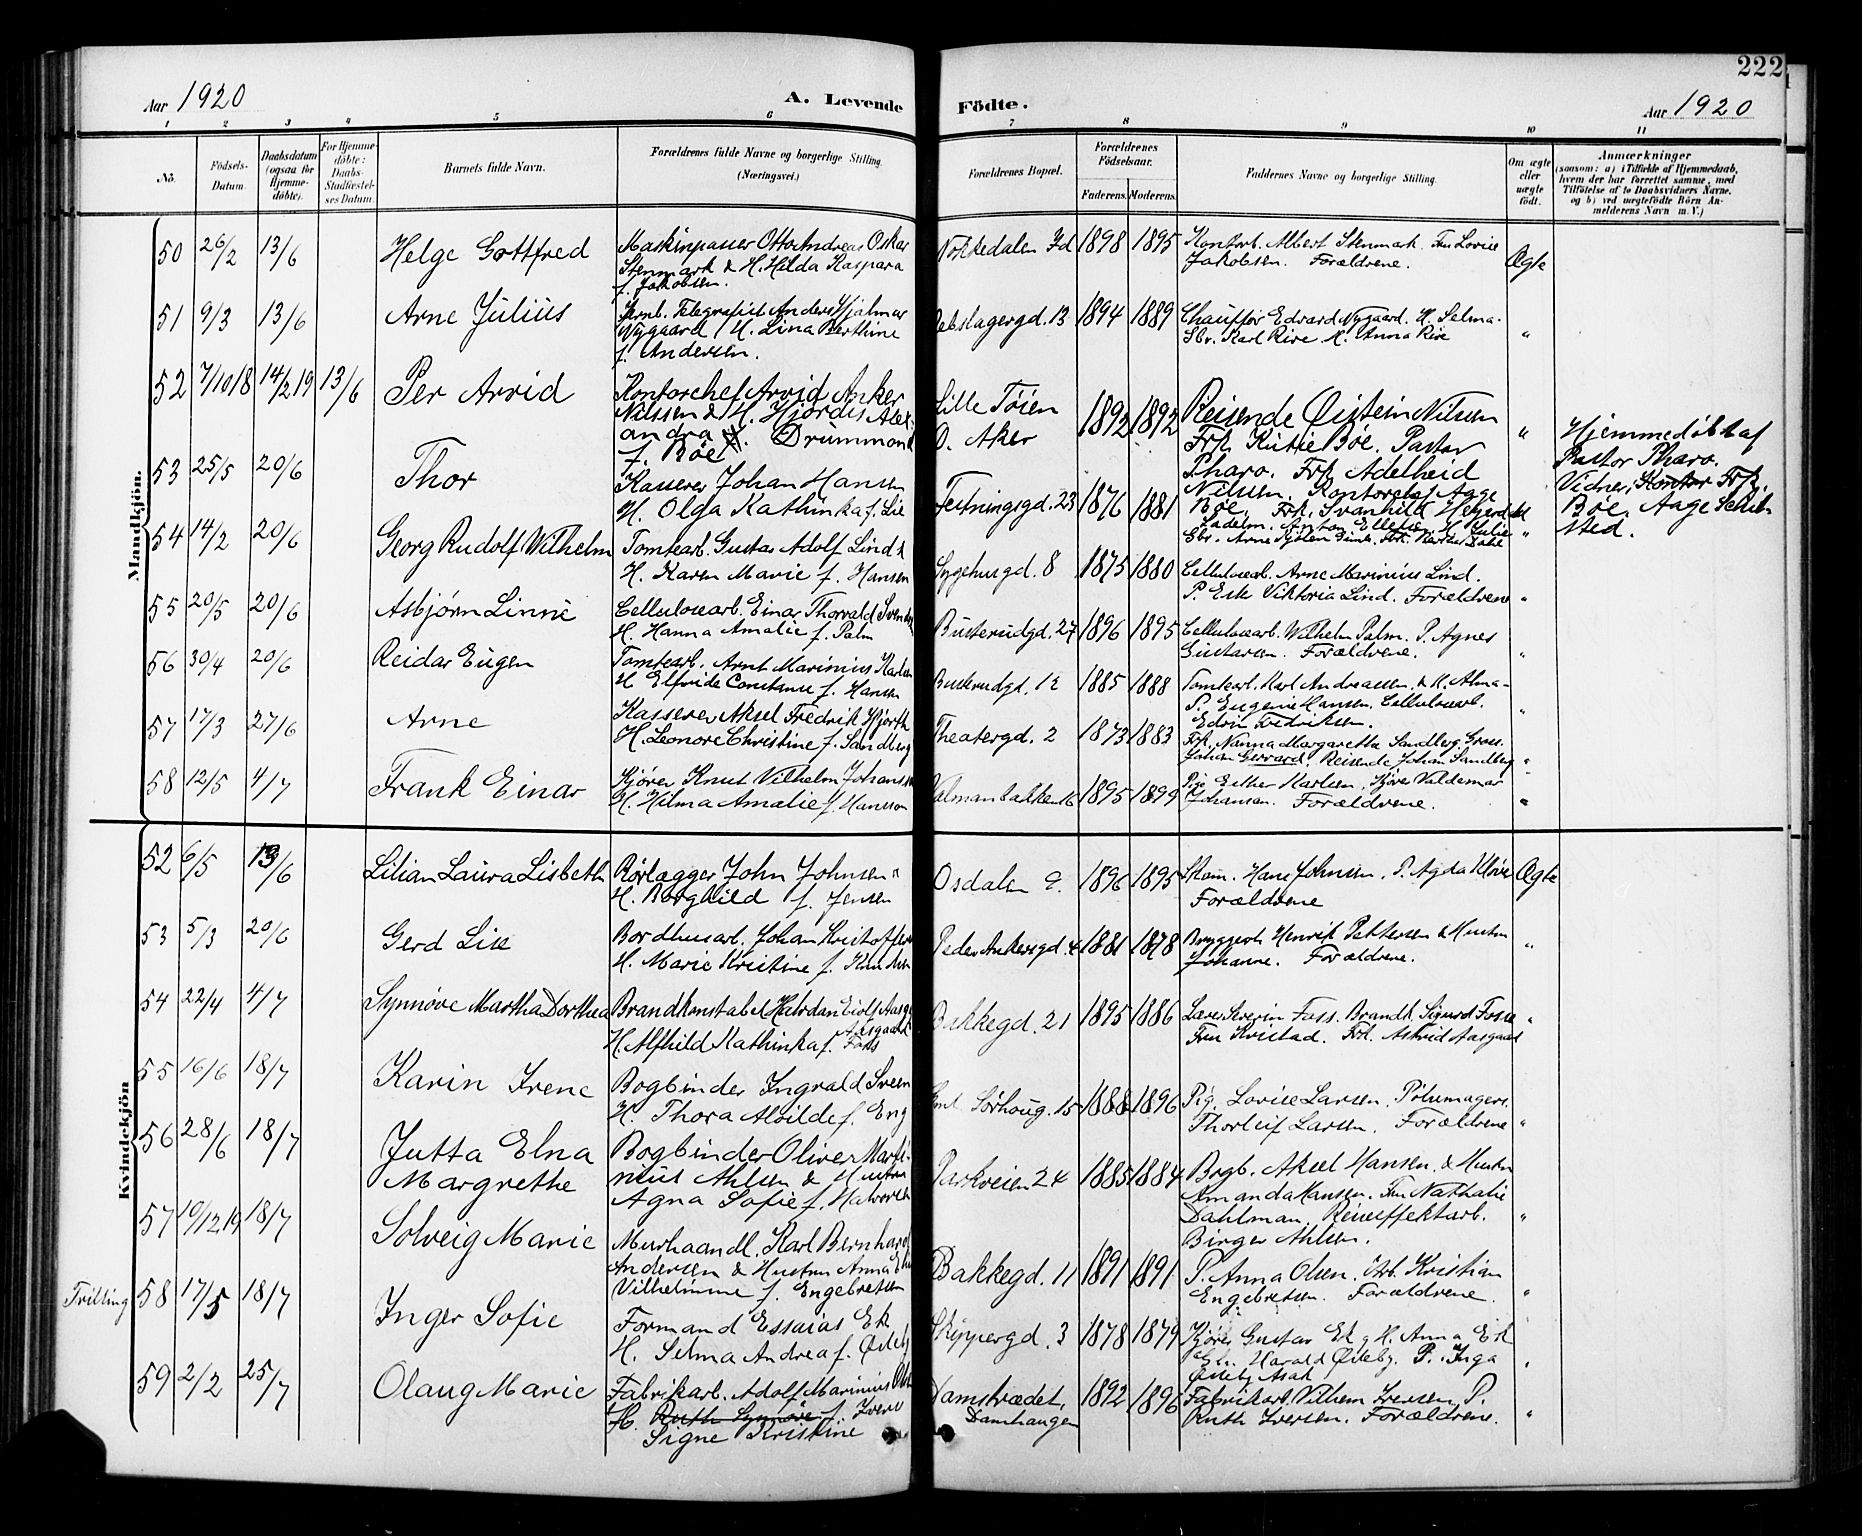 222
Aar 1920
A. Levende Födte.
Aar 1920
1 2 3 4 5 6 7 8 9 10 11
No.
Födsels-Datum.
Daabsdatum (ogsaa for Hjemmedöbte).
For Hjemmedöbte: Daabs-Stadfæstelses Datum.
Barnets fulde Navn.
Forældrenes fulde Navne og borgerlige Stilling. (Næringsvei.)
Forældrenes Bopæl.
Forældrenes Födselsaar.
Faderens. Moderens.
Faddernes Navne og borgerlige Stilling.
Om ægte eller uægte födt.
Anmærkninger
(saasom: a) i Tilfælde af Hjemmedaab,
hvem der har forrettet samme, med
Tilföielse af to Daabsvidners Navne,
og b) ved uægtefödte Börn An-
melderens Navn m. V.)
Mandkjön.
50 26/2 13/6 Helge Gottfred Maskinpasser Otto Andreas Oskar Nokkedalen 1898 1895 Kontorb. Albert Stenmark. Fru Lovise
Stenmark & H. Hilda Kaspara Jakobsen. Forældrene. Ægte
f. Jakobsen.
51 9/3 13/6 Arne Julius Jernb. Telegrafist Anders Hjalmar 13 1894 1889 Chauffør Edvard Nygaard. H. Selma.
Nygaard, H. Lina Berthine Karl Rive H. Anna Rive "
f. Andersen.
52 7/10 18 14/2 19 13/6 Per Arvid Kontorchef Arvid Anker Lille Töien 1892 1892 Reisende Øistein Nilsen
Nilssen & H. Hjördis Alex- Ö. Aker Frk. Kirtie Böe. Pastor " Hjemmedöbt af
andra Drummond Pharo. Frk Adelheid Pastor Pharo.
f. Böe Nilsen. Kontorchef Aage Vidner: Frk.
Böe. Frk. Svanhild Böe. Aage
sted.
53 25/5 20/6 Thor Kasserer Johan Hansen Festningsgd. 23 1876 1881
H. Olga Kathinka f. Lie Anton Ellefsen H. Julie "
54 14/2 20/6 Georg Rudolf Wilhelm Tomtearb. Gustav Adolf Lind & Sygehusgd. 8 1875 1880 Cellulosearb. Arne Marinius Lind.
H. Karen Marie f. Hansen P. Viktoria Lind. Forældrene "
55 20/5 20/6 Asbjørn Linné Cellulosearb. Einar Thorvald Busterudgd. 27 1896 1895 Cellulosearb. Wilhelm Palm. P. Agnes
H. Hanna Amalie f. Palm Gustavsen. Forældrene. "
56 30/4 20/6 Reidar Eugen Tomtearb. Arnt Marinius Karlsen Busterudgd. 12 1885 1888 Tomtearb. Karl Andreassen & H. Alma-
H Elfrida Constance f. Hansen P. Eugenie Hansen. Cellulosearb. "
Edvin Fredriksen.
57 17/3 27/6 Arne Kasserer Aksel Fredrik Hjorth Theatergd. 2 1873 1883 Frk. Nanna Margarethe Sandberg. Gross.
H. Leonore Christine f. Sandberg Johan Gerrard. Reisende Johan Sandberg "
58 12/5 4/7 Frank Einar Kjører Knut Vilhelm Johansen 16 1895 1899 Pige Esther Karlsen, Kjører Valdemar
H. Hilma Amalie f. Hansson Johansen. Forældrene. "
Kvindekjön
52 6/5 13/6 Lilian Laura Lisbeth Rörlægger John Johnsen Osdalen 9. 1896 1895 Skom. Hans Johnsen. P. Agda Ægte
H. Borghild f. Jensen Forældrene
53 5/3 20/6 Gerd Lise Bordhusarb. Johan Kristoffersen Peder Ankersgd. 4 1881 1878 Bryggeriarb. Henrik Pettersen & Hustru
H. Marie Kristine f. Knudsen Johanne. Forældrene. "
54 22/4 4/7 Synnøve Martha Dorthea Brandkonstabel Halvdan Eiolf Aasgaard Bakkegd. 21 1895 1886 Lærer Severin Foss. Brandk. Sigurd Fosse "
H. Alfhild Kathinka f. Foss Fru Kvistad. Frk. Astrid Aasgaard
55 16/6 18/7 Karin Irene Bogbinder Ingvald Sveen Sörhaug. 15 1888 1896 Pig. Lovise Larsen. Pölsemagers.
H. Thora Alvilde f. Eng Thorleif Larsen. Forældrene "
56 28/6 18/7 Jutta Elna Bogbinder Oliver Marti- Parkveien 24 1885 1884 Bogb. Aksel Hansen & Hustru
Margrethe nius Ahlsen & Hustru Amanda Hansen. Fru Nathalie
Agna Sofie f. Halvorsen Dahlman. Reiseeffektarb. "
Birger Ahlsen.
57 19/12 19 18/7 Solveig Marie Murhaandl. Karl Bernhard Bakkegd. 11 1891 1891 P. Anna Olsen. Arb. Kristian
Andersen & Hustru Anna Engebretsen. Forældrene. "
Vilhelmine f. Engebretsen
Trilling 58 17/5 18/7 Inger Sofie Formand Essaias Ek Skippergd. 3 1878 1879 Kjører Gustav Ek & H. Anna Ek
H. Selma Andrea f. Harald Østeby. P. Inga "
59 2/2 25/7 Olaug Marie Fabrikarb. Adolf Marinius Damstrædet, 1892 1896 Fabrikarb. Vilhelm Iversen, P.
H. Ruth Synnöve f. Damhaugen Ruth Iversen. Forældrene. "
Signe Kristine